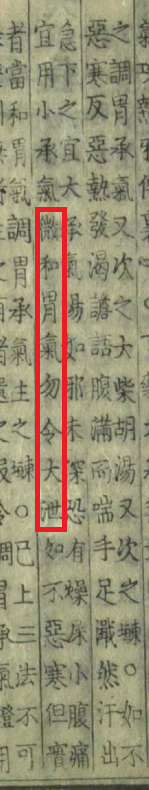 之調胃承氣又次之大柴胡湯又次之○如不
惡寒反惡熱發渴譫語腹滿而喘手足濈然汗出
急下之宜大承氣湯如邪未深恐有燥屎小腹痛
宜用小承氣微和胃氣勿令大泄如不惡寒但實
者當和胃氣調胃承氣主之○已上三法不可